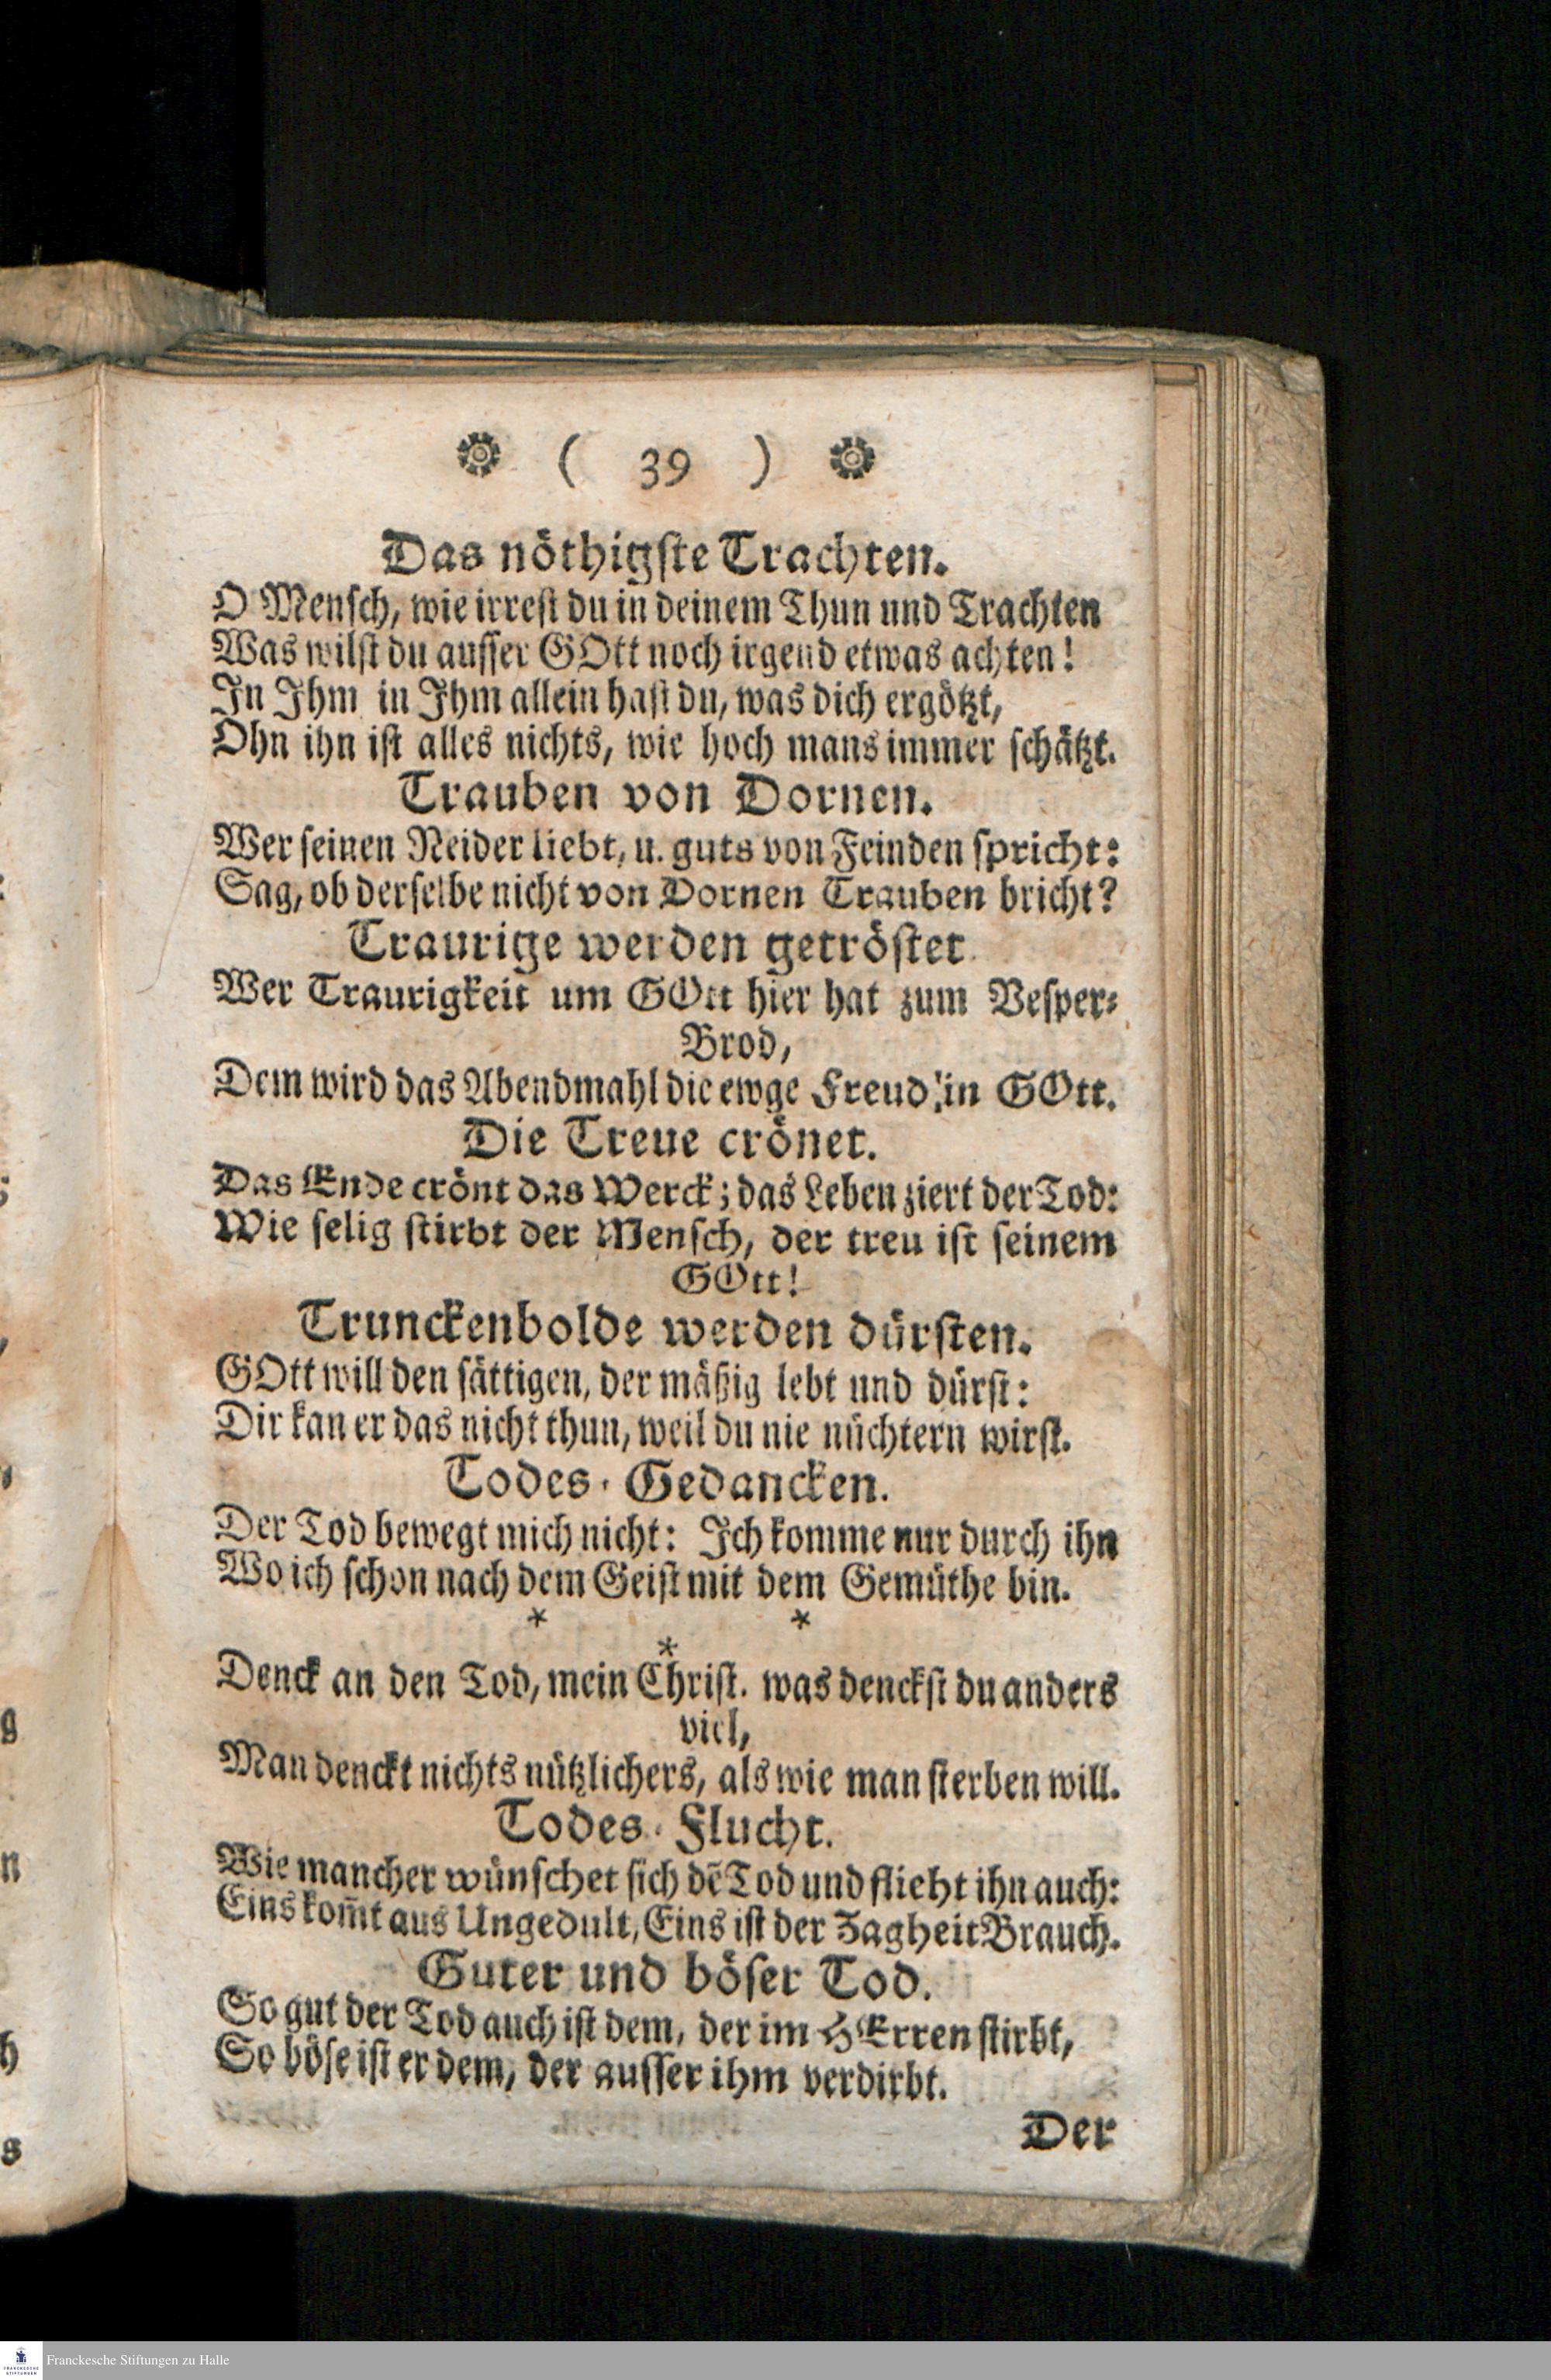 ( 39 )
Das nöthigste Trachten.
O Mensch, wie irrest du in deinem Thun und Trachten
Was wilst du ausser GOtt noch irgend etwas achten!
In Ihm in Ihm allein hast du, was dich ergötzt,
Ohn ihn ist alles nichts, wie hoch mans immer schätzt.
Trauben von Dornen.
Wer seinen Neider liebt, u. guts von Feinden spricht:
Sag, ob derselbe nicht von Dornen Trauben bricht?
Traurige werden getröstet.
Wer Traurigkeit um GOtt hier hat zum Vesper-
Brod,
Dem wird das Abendmahl die ewge Freud' in GOtt.
Die Treue crönet.
Das Ende crönt das Werck; das Leben ziert der Tod:
Wie selig stirbt der Mensch, der treu ist seinem
GOtt!
Trunckenbolde werden dürsten.
GOtt will den sättigen, der mäßig lebt und dürst:
Dir kan er das nicht thun, weil du nie nüchtern wirst.
Todes-Gedancken.
Der Tod bewegt mich nicht: Ich komme nur durch ihn
Wo ich schon nach dem Geist mit dem Gemüthe bin.
* *
*
Denck an den Tod, mein Christ. was denckst du anders
viel,
Man denckt nichts nützlichers, als wie man sterben will.
Todes-Flucht.
Wie mancher wünschet sich dē Tod und flieht ihn auch:
Eins kom̄t aus Ungedult, Eins ist der Zagheit Brauch.
Guter und böser Tod.
So gut der Tod auch ist dem, der im HErren stirbt,
So böse ist er dem, der ausser ihm verdirbt.
Der
Franckesche Stiftungen zu Halle